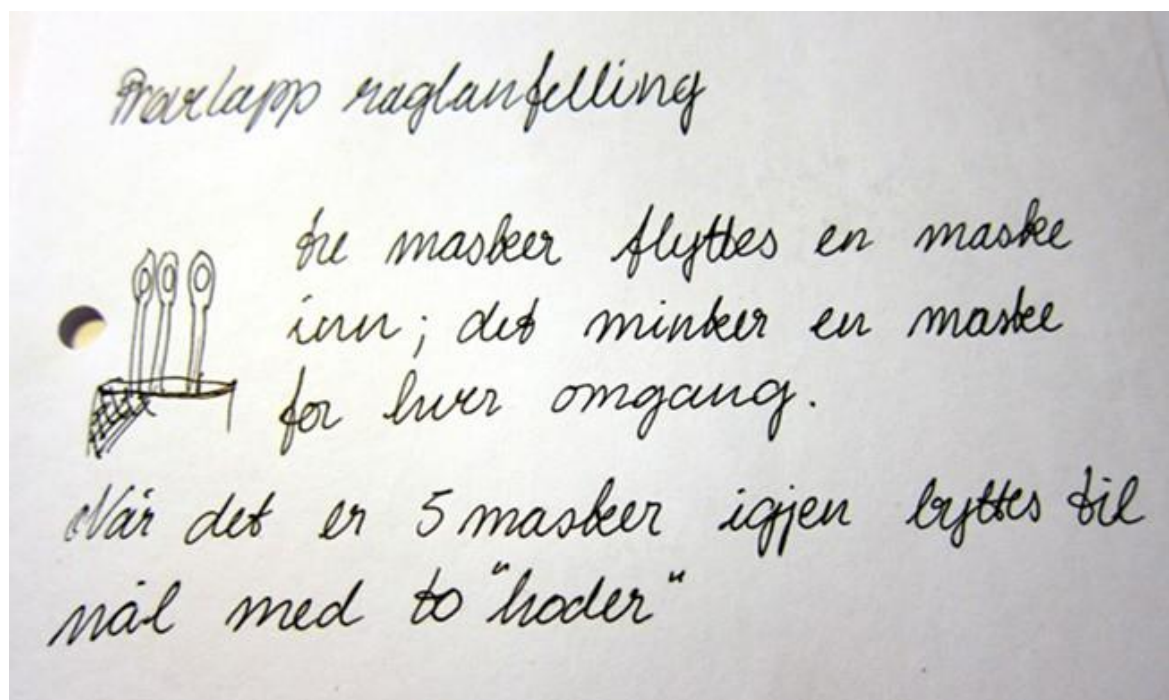 Prøvelapp raglanfelling
tre masker flyttes en maske
inn; det minker en maske
for hver omgang.
Når det er 5 masker igjen byttes til
nål med to "hoder"